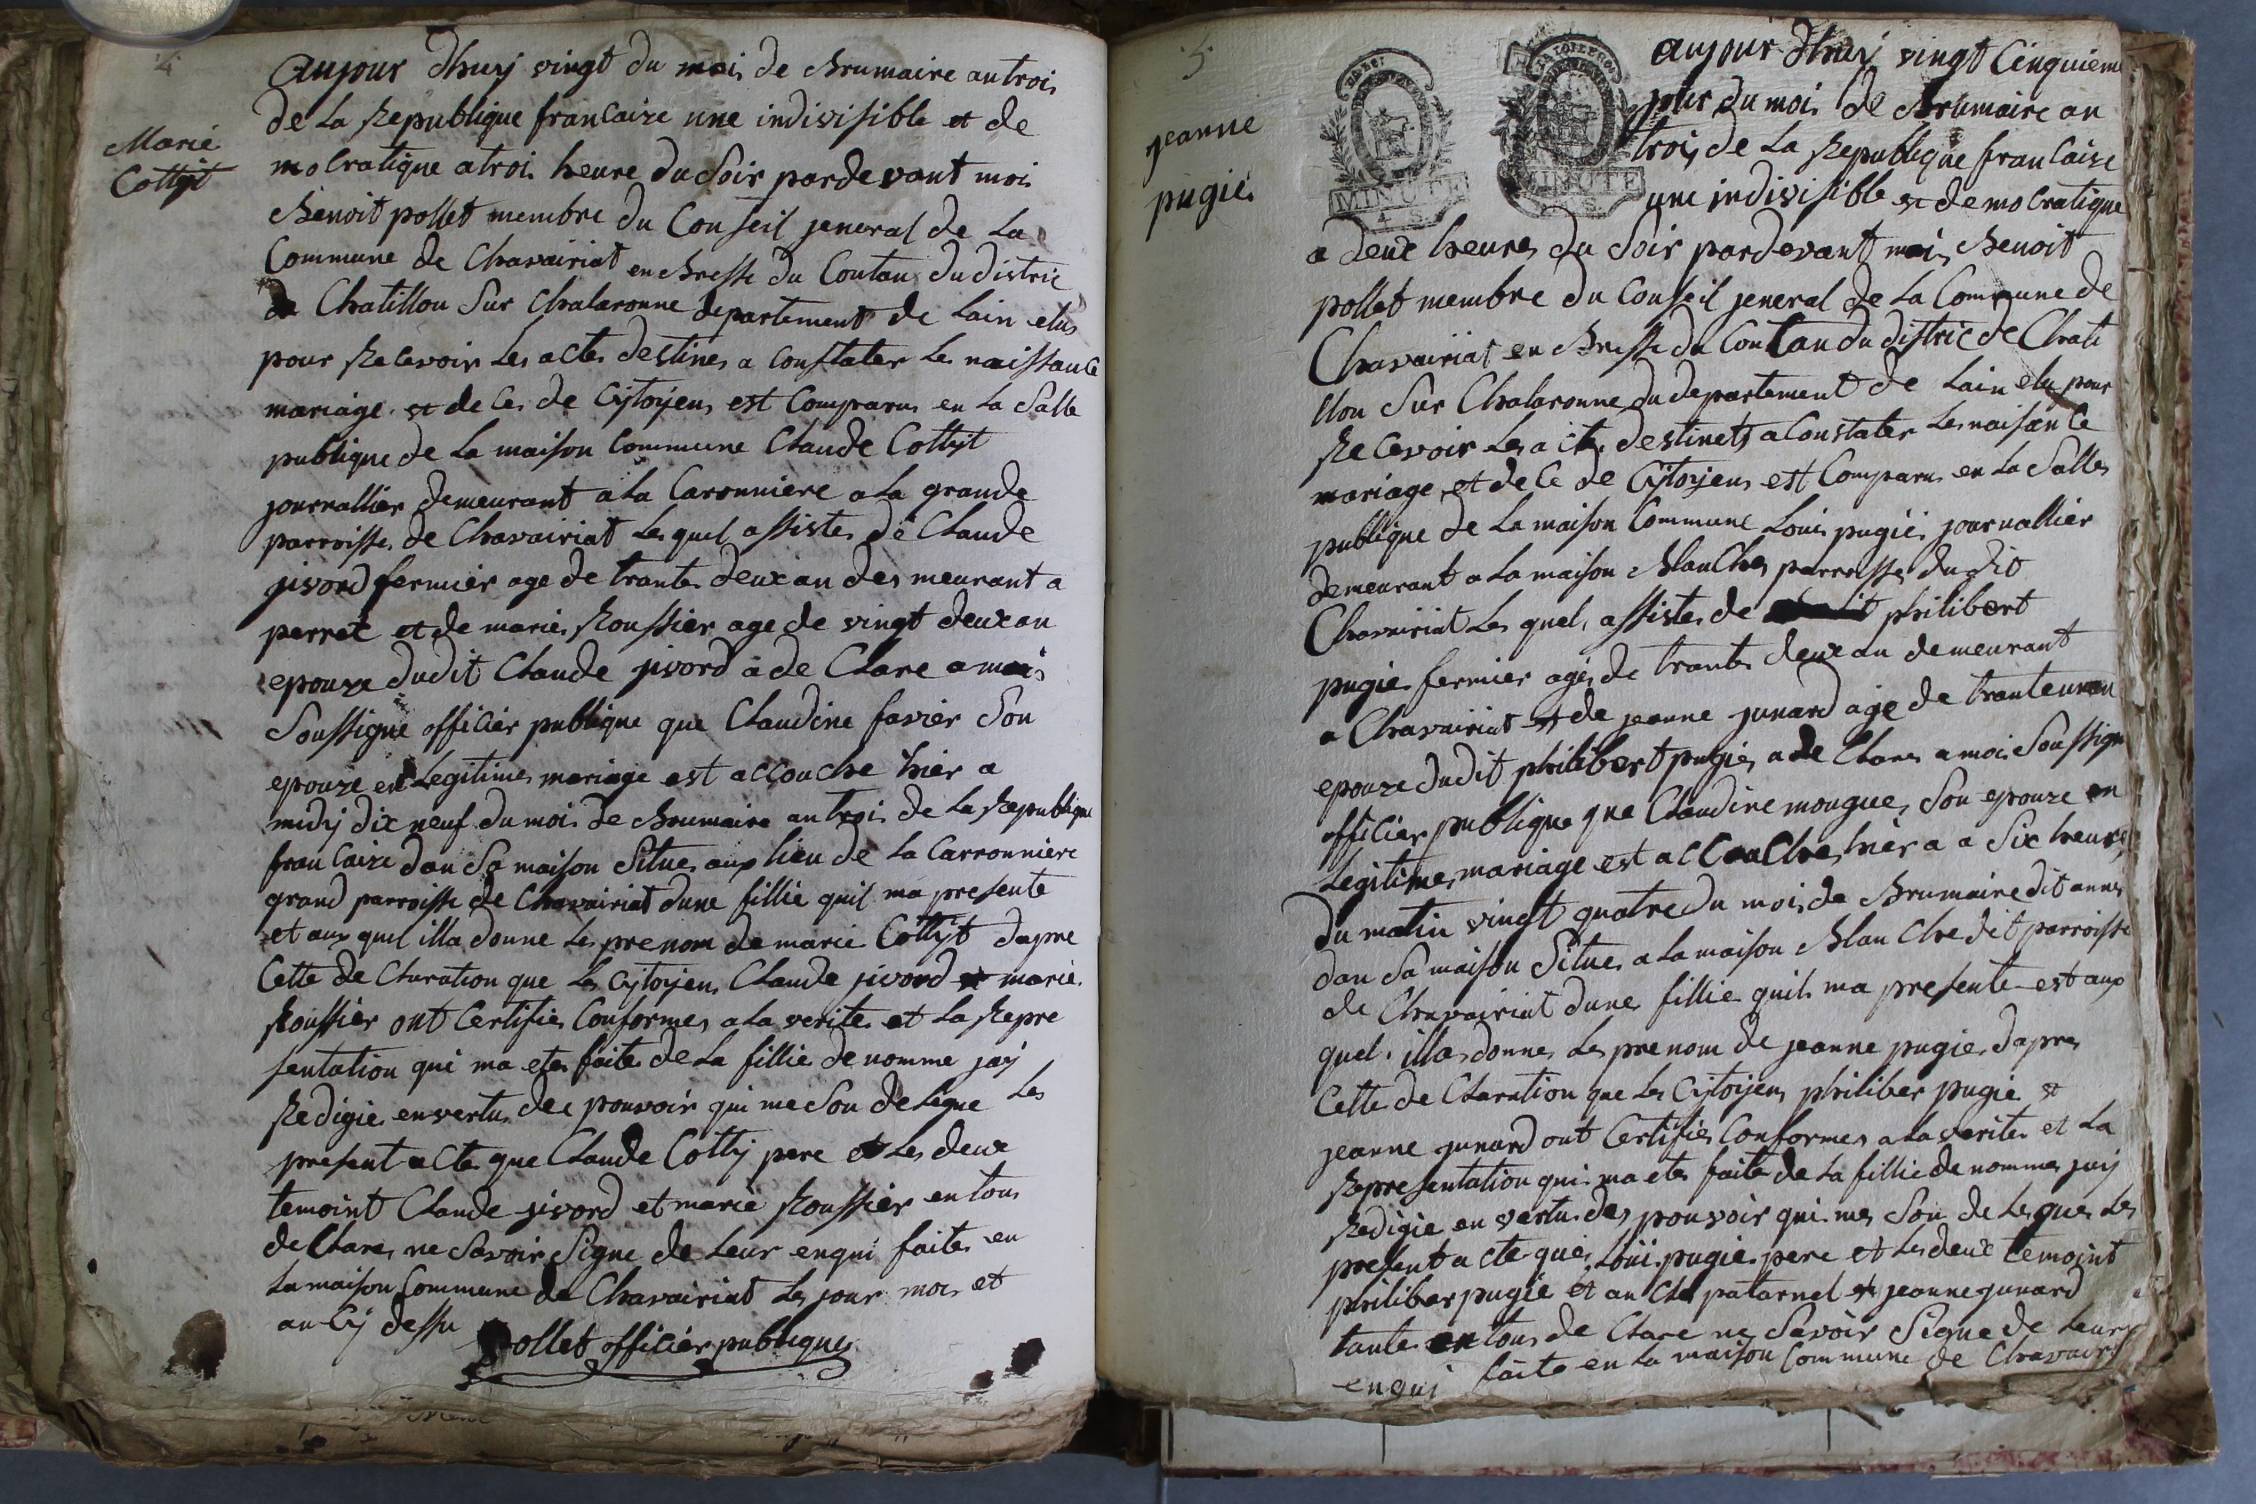 4
Marie
Cottyt
aujour dhuy vingt du mois de Brumaire an trois
de La Republique francaize une indivisible et de
mocratique a trois heure du Soir pardevant moi
Benoit pollet membre du Conseil jeneral de La
Commune de Chavairiat en Bresse du Contan du distric
de Chatillon Sur Chalaronne departement de Lain elus
pour Recevoir Les actes destines a Constater Les naissance
mariage et deces de Cytoyens est Comparus en La Salle
publique de La maison Commune Claude Cottyt
journallier demeurant a La Caronniere a La grande
parroisse de Chavairiat Le quel assistes de Claude
jivord fermier age de trante deux an des meurant a
perret et de maries Roussier age de vingt deux an
epouze dudit Claude jivord a de Clare a mois
Soussigne officier publique que Claudine favier Son
epouze en Legitimes mariage est accouche hier a
midy dix neuf du mois de Brumaire an trois de La Republique
francaize dan Sa maison Situes aux lieu de La Carronniere
grand parroisse de Chavairiat dune fillie quil ma presente
et aux quel illa donne Les prenom de marie Cottyt dapre
Cette de Claration que Les Cytoyens Claude jivord et marie
Roussier ont Certifies Conformes a La verites et La Repre
sentation qui ma etes faites de La fillie denomme jay
Redigie en vertu des pouvoir qui me Son delegue Les
present actes que Claude Cotty pere et Les deux
temoint Claude jivord et marie Roussier en tous
de Clares ne Savoir Signe de Leur enqui faites en
La maison Commune de Chavairiat Les jour mois et
an Cy dessu
Pollet officier publiques
5
jeanne
pugies
MINUTE
4 S.
MINUTE
S.
aujour dhuy vingt Cinquieme
jour du mois de Brumaire an
trois de La Republique francaize
une indivisible et democratique
a deux heures du Soir pardevant mois Benoit
pollet membre du Conseil jeneral de La Commune de
Chavairiat en Bresse du Contan du distric de Chati
llon Sur Chalaronne du departement de Lain elu pour
Recevoir Les actes destinets a Constater Les naisance
mariage et dece de Cytoyens est Comparus en La Salles
publique de La maison Commune Loui pugies journallier
demeurant a La maison Blanches parroisses dudit
Chavairiat Les quel assistes de philibert
pugies fermier ages de trantes deux an demeurant
a Chavairiat et de jeanne junard age de trante un an
epouze dudit philibert pugies a de Clares a moi Soussigne
officier publique que Claudine mongues Son epouze en
Legitimes mariage est accouches hier a a Six heures
du matin vingt quatre du mois de Brumaire dit annes
dan Sa maison Situes a La maison Blanche dit parroisse
de Chavairiat dunes fillie quils ma presente est aux
quel illas donnes Les prenom de jeanne pugies dapres
Cettes de Claration que Les Cytoyens philiber pugie et
jeanne junard ont Certifies Conformes a La verites et La
Representation qui ma etes faites de La fillie denommes jay
Redigie en vertu des pouvoir qui mes Son delegues Les
present acte ques Loui pugie pere et Les deux temoint
philiber pugie et an cle patarnel et jeanne junard
tantes en tous de Clare ne Savoir Signe de Leur
enqui faite en La maison Commune de Chavairi